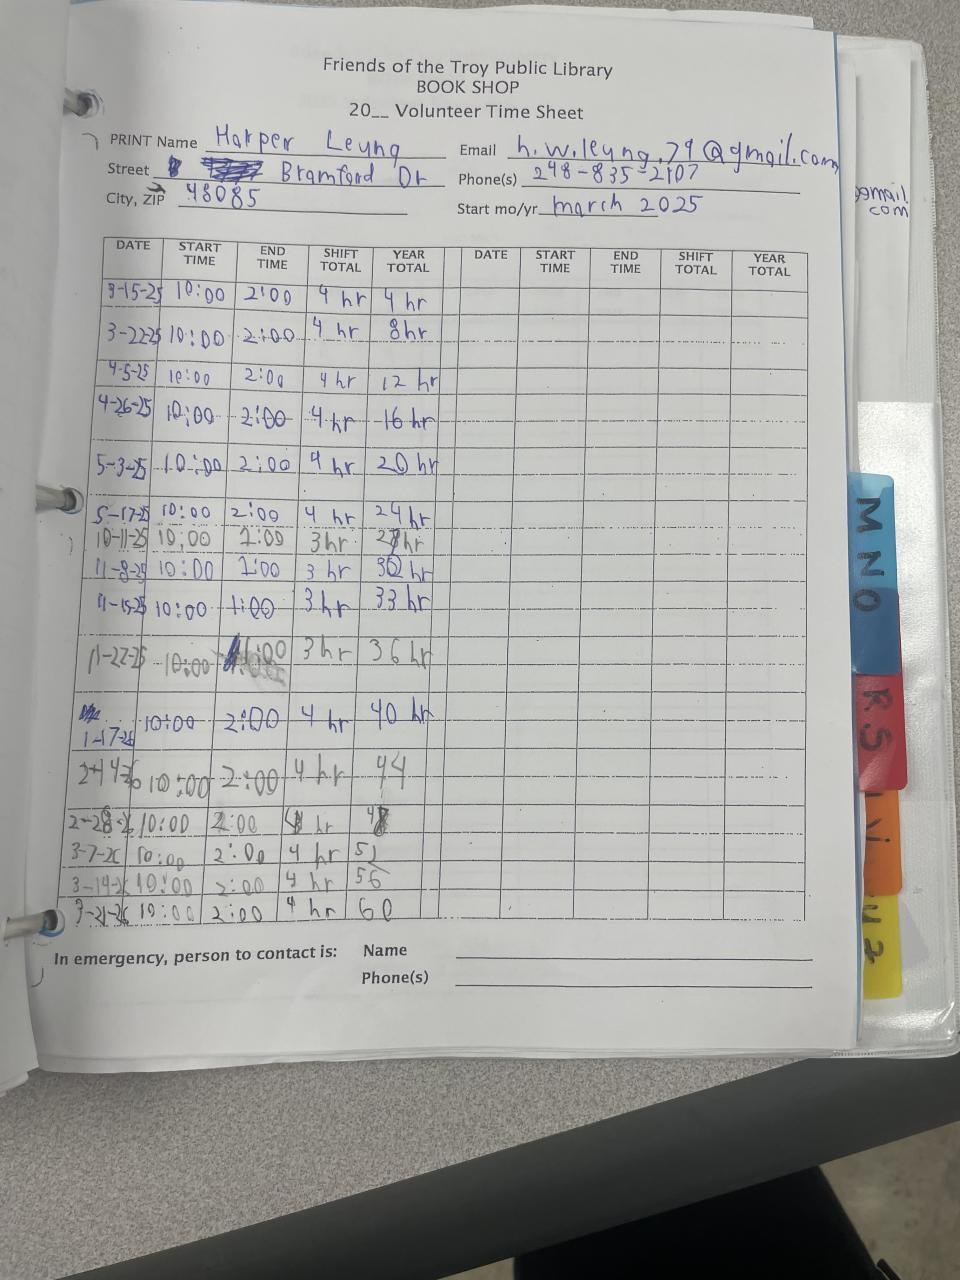 Friends of the Troy Public Library
BOOK SHOP
20__ Volunteer Time Sheet
PRINT Name Harper Leung Email h.w.leung.79@gmail.com
Street Bramford Dr Phone(s) 248-835-2107
City, ZIP 48085 Start mo/yr march 2025
@gmail.
com
DATE START TIME END TIME SHIFT TOTAL YEAR TOTAL DATE START TIME END TIME SHIFT TOTAL YEAR TOTAL
3-15-25 10:00 2:00 4 hr 4 hr
3-22-25 10:00 2:00 4 hr 8hr
4-5-25 10:00 2:00 4 hr 12 hr
4-26-25 10:00 2:00 4 hr 16 hr
5-3-25 10:00 2:00 4 hr 20 hr
5-17-25 10:00 2:00 4 hr 24 hr
10-11-25 10:00 1:00 3 hr hr
11-8-25 10:00 1:00 3 hr 30 hr
11-15-25 10:00 1:00 3 hr 33 hr
11-22-25 10:00 1:00 3 hr 36 hr
1-17-26 10:00 2:00 4 hr 40 hr
2-14-26 10:00 2:00 4 hr 44
2-28-26 10:00 2:00 4 hr 48
3-7-26 10:00 2:00 4 hr 52
3-14-26 10:00 2:00 4 hr 56
3-21-26 10:00 2:00 4 hr 60
In emergency, person to contact is: Name
Phone(s)
M N O
R S